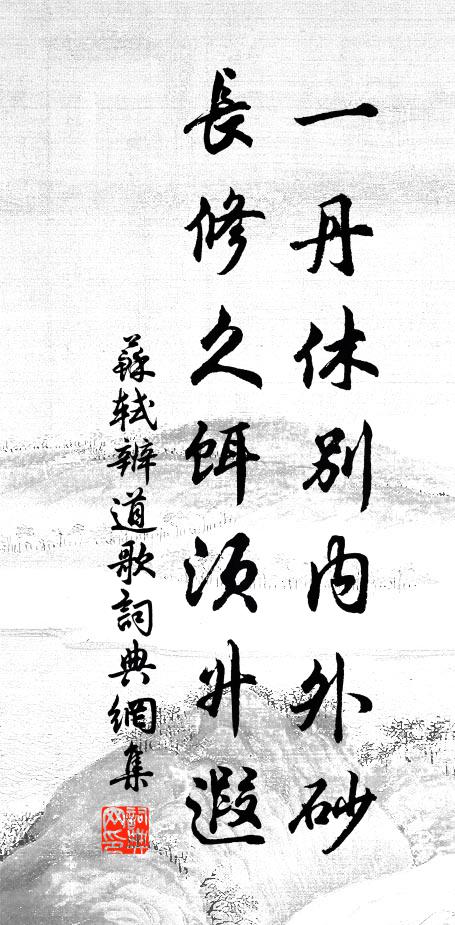 一丹休別內外砂
長修久餌須升遐
蘇軾辨道歌詞典網集